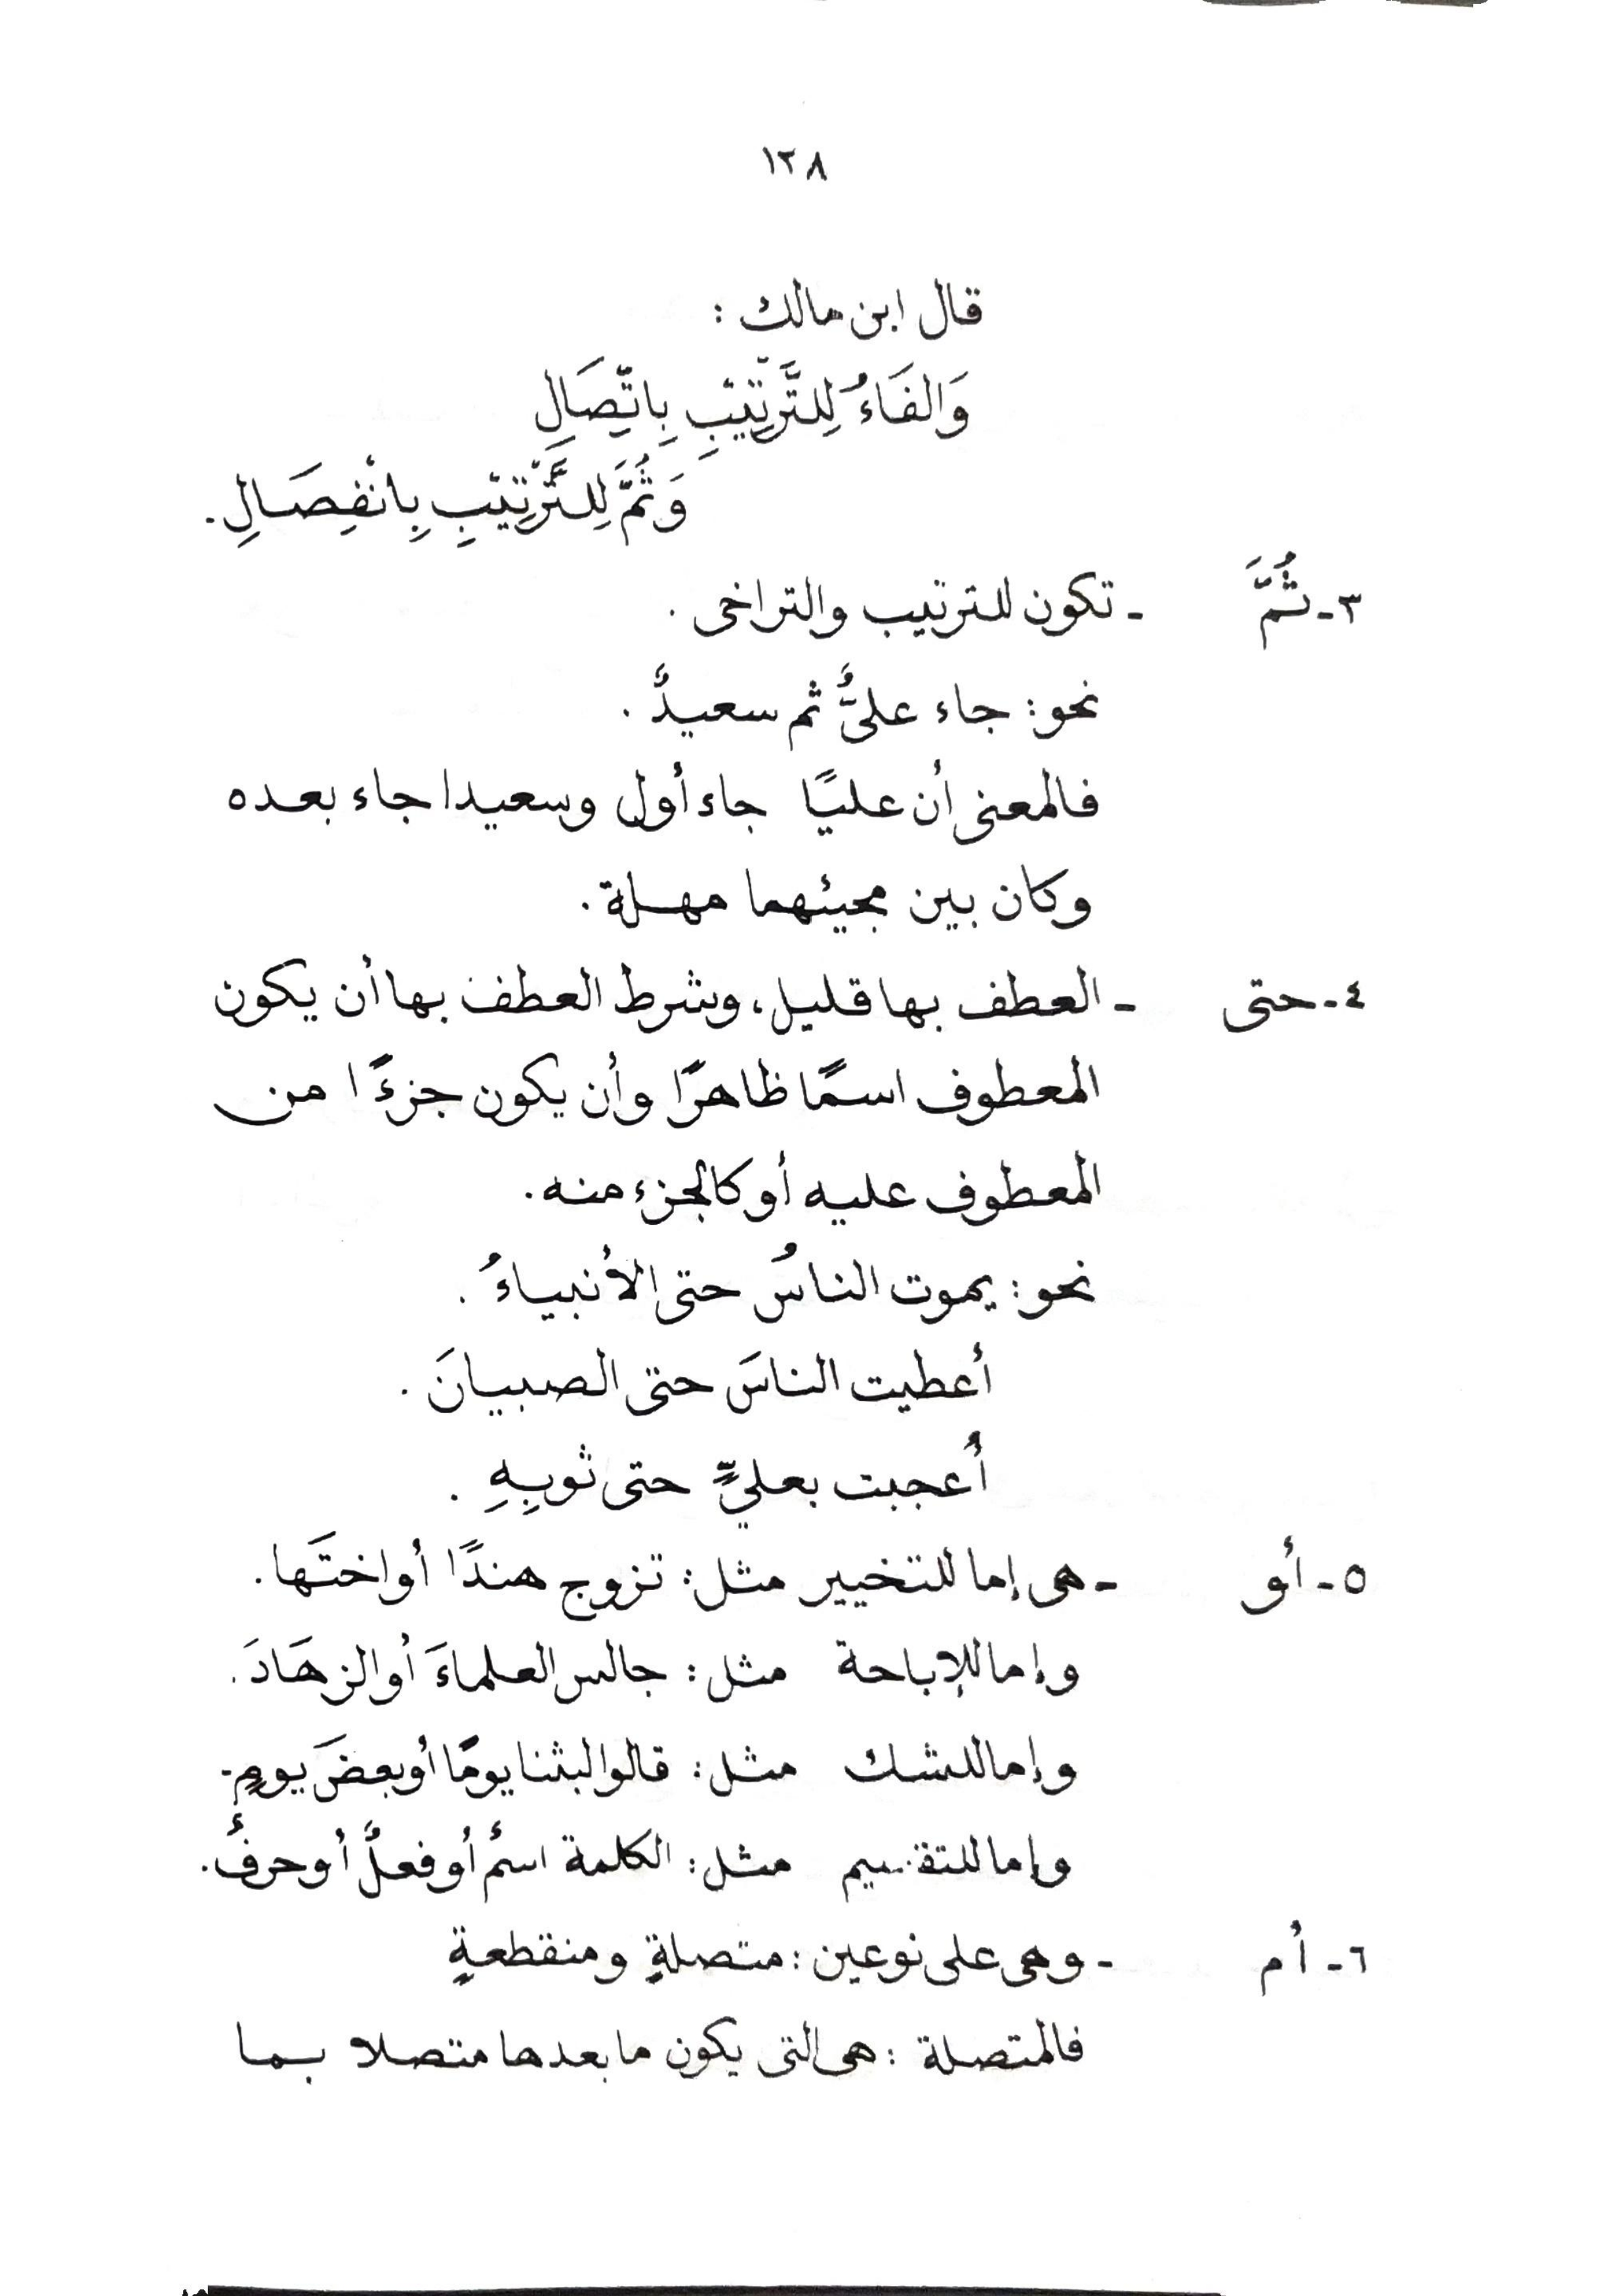 ١٢٨
قال ابن مالك :
وَالفَاءُ لِلتَّرْتِيْبِ بِاتِّصَالِ
وَثُمَّ لِلتَّرْتِيْبِ بِانْفِصَالِ.
٣- ثُمَّ - تكون للترتيب والتراخى .
نحو: جاء علىٌّ ثم سعيدٌ .
فالمعنى أن عليًا جاء أول وسعيدا جاء بعده
وكان بين مجيئهما مهلة.
٤- حتى - العطف بها قليل، وشرط العطف بها أن يكون
المعطوف اسمًا ظاهرًا وأن يكون جزءًا من
المعطوف عليه أو كالجزء منه.
نحو: يموت الناسُ حتى الأنبياءُ .
أعطيت الناسَ حتى الصبيانَ .
أُعجبت بعليٍّ حتى ثوبِهِ .
٥- أو - هى إما للتخيير مثل: تزوج هندًا أو اختَها.
وإما للإباحة مثل: جالس العلماءَ أو الزهَادَ.
وإما للشك مثل: قالوا لبثنا يومًا أو بعضَ يومٍ-
وإما للتقسيم مثل: الكلمة اسمٌ أو فعلٌ أو حرفٌ.
٦- أم - وهى على نوعين: متصلةٍ ومنقطعةٍ
فالمتصلة : هى التى يكون ما بعدها متصلا بما